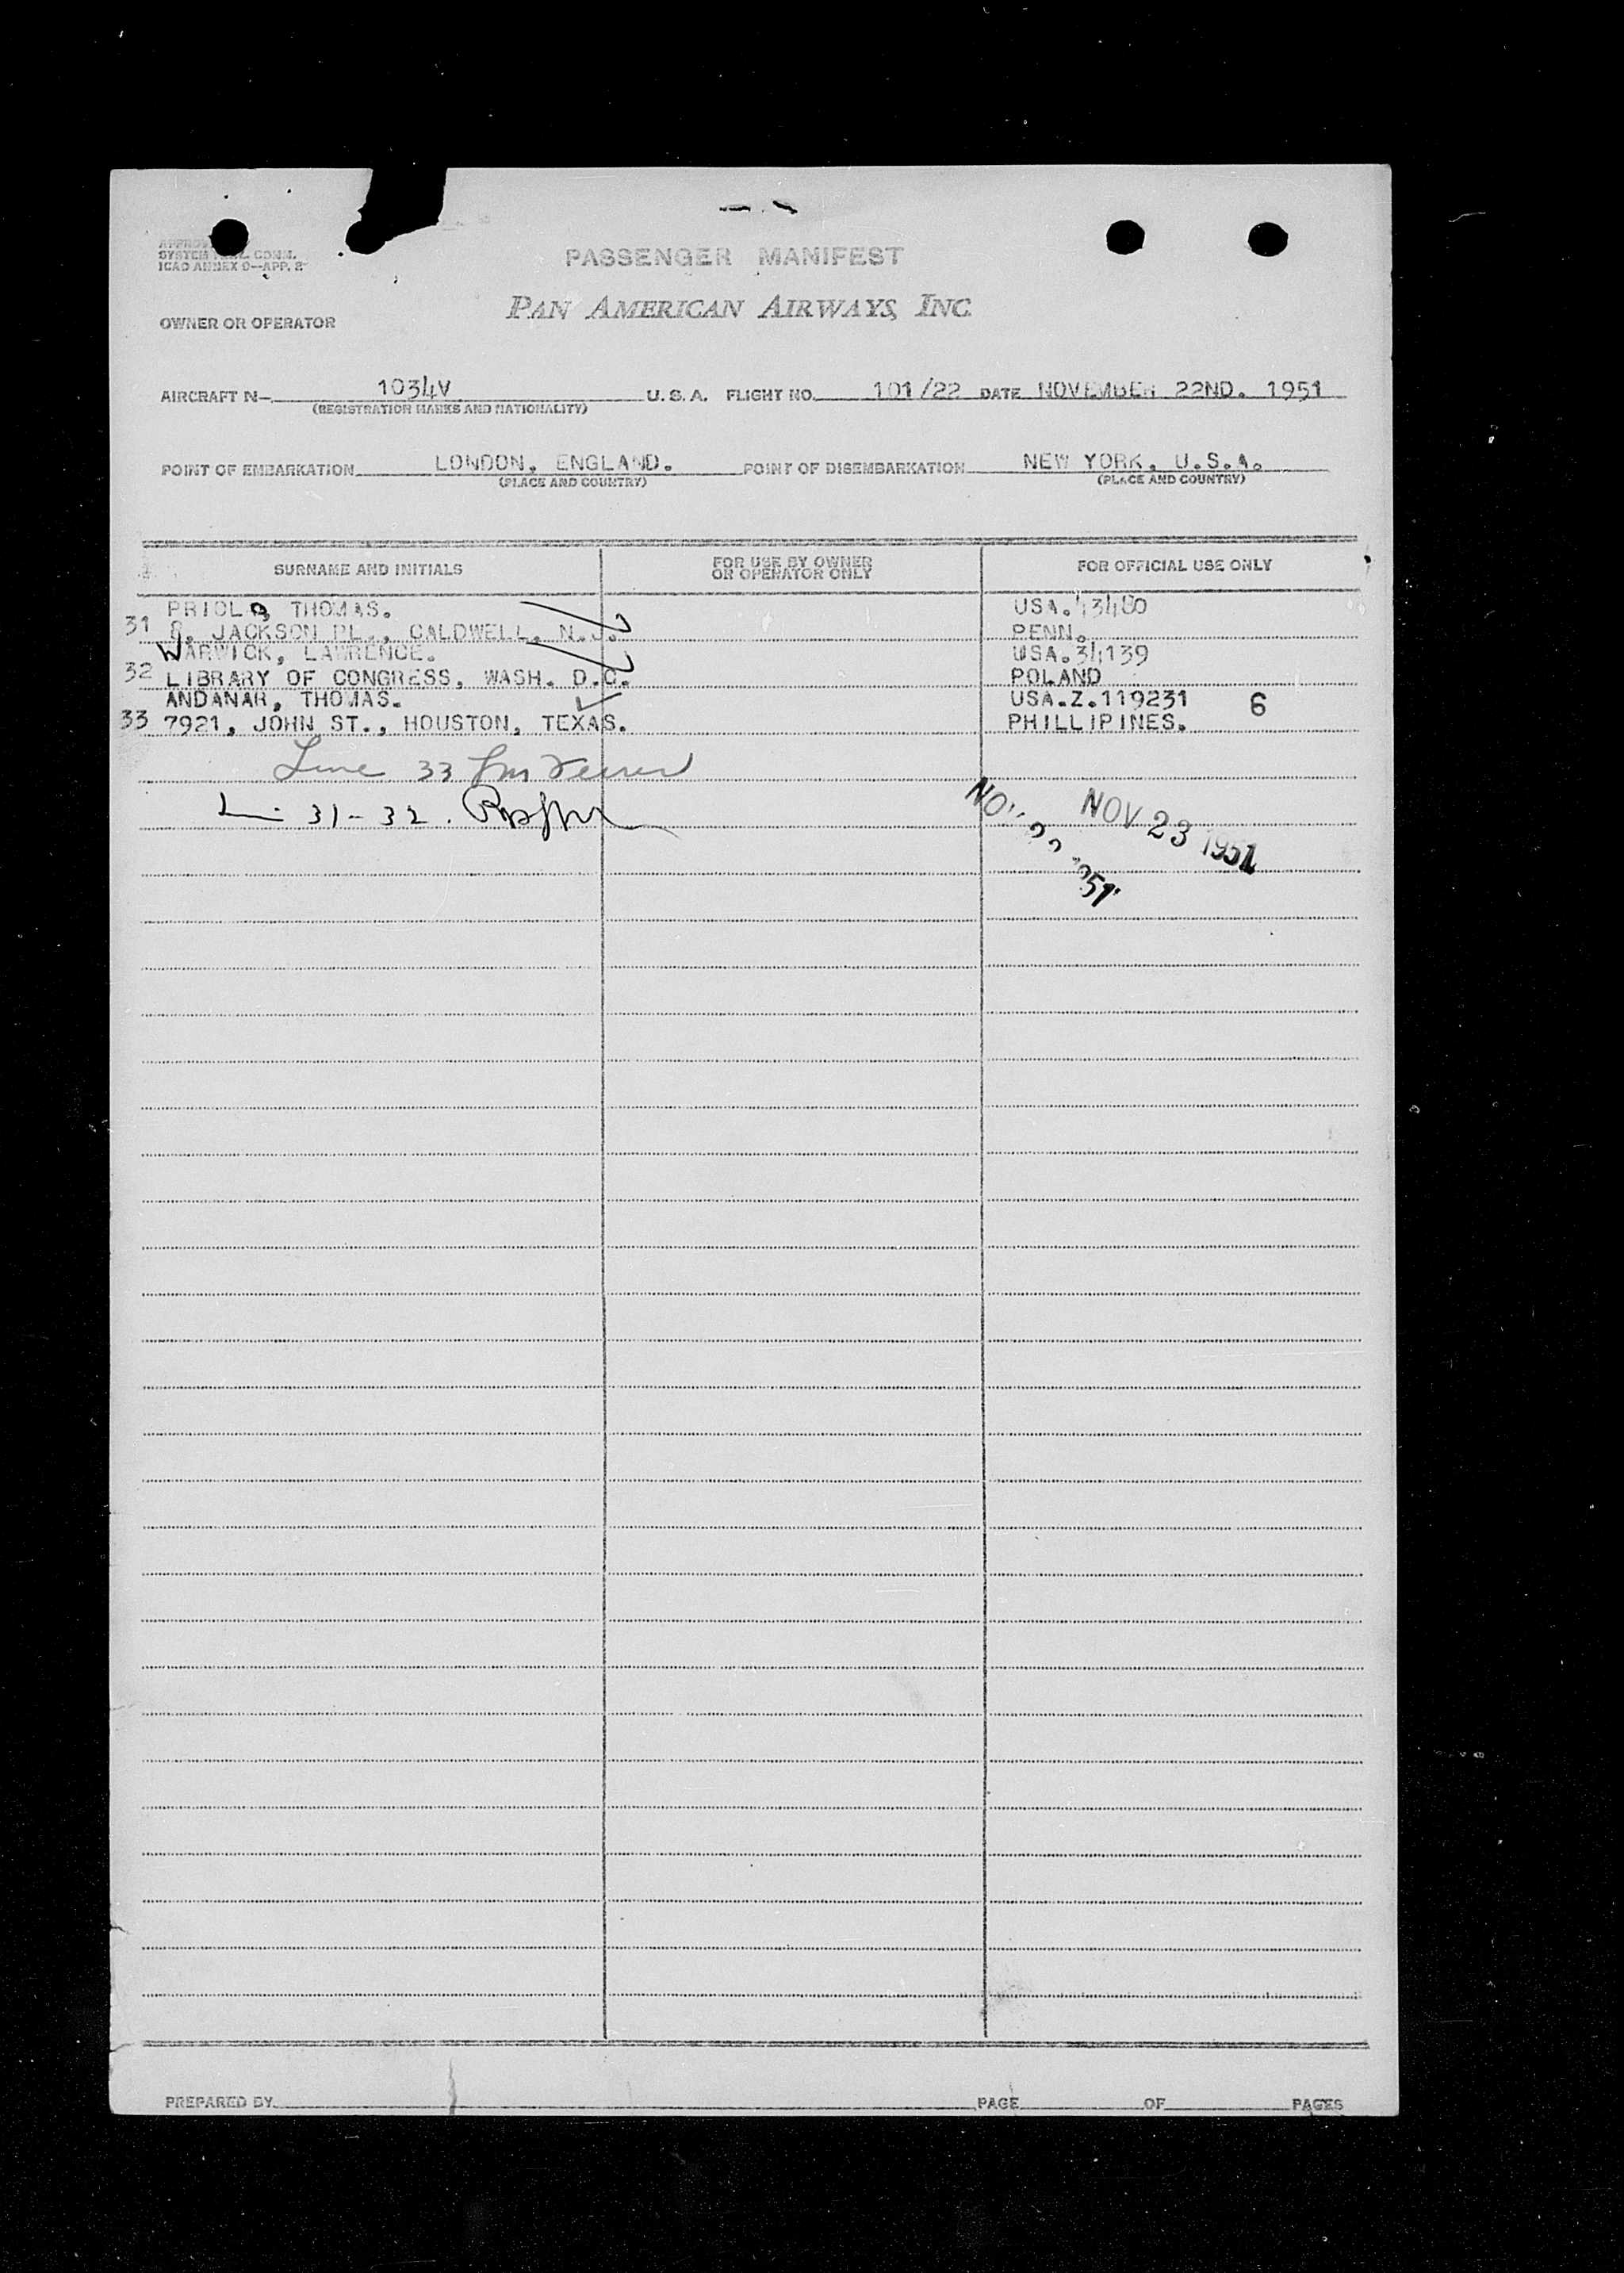 SYSTEM COMM.
ICAO ANNEX 9—APP. 2
PASSENGER MANIFEST
PAN AMERICAN AIRWAYS, INC.
OWNER OR OPERATOR
AIRCRAFT N— 1034V U. S. A. FLIGHT NO. 101/22 DATE NOVEMBER 22ND. 1951
(REGISTRATION MARKS AND NATIONALITY)
POINT OF EMBARKATION LONDON, ENGLAND. POINT OF DISEMBARKATION NEW YORK, U.S.A.
(PLACE AND COUNTRY) (PLACE AND COUNTRY)
SURNAME AND INITIALS FOR USE BY OWNER OR OPERATOR ONLY FOR OFFICIAL USE ONLY
THOMAS. USA.43480
31 8, JACKSON PL., CALDWELL, N.J. PENN.
WARWICK, LAWRENCE. USA.34139
32 LIBRARY OF CONGRESS, WASH. D.C. POLAND
ANDANAR, THOMAS. USA.Z.119231 6
33 7921, JOHN ST., HOUSTON, TEXAS. PHILLIPINES.
Line 33
31-32.
NOV 23 1951
PREPARED BY PAGE OF PAGES